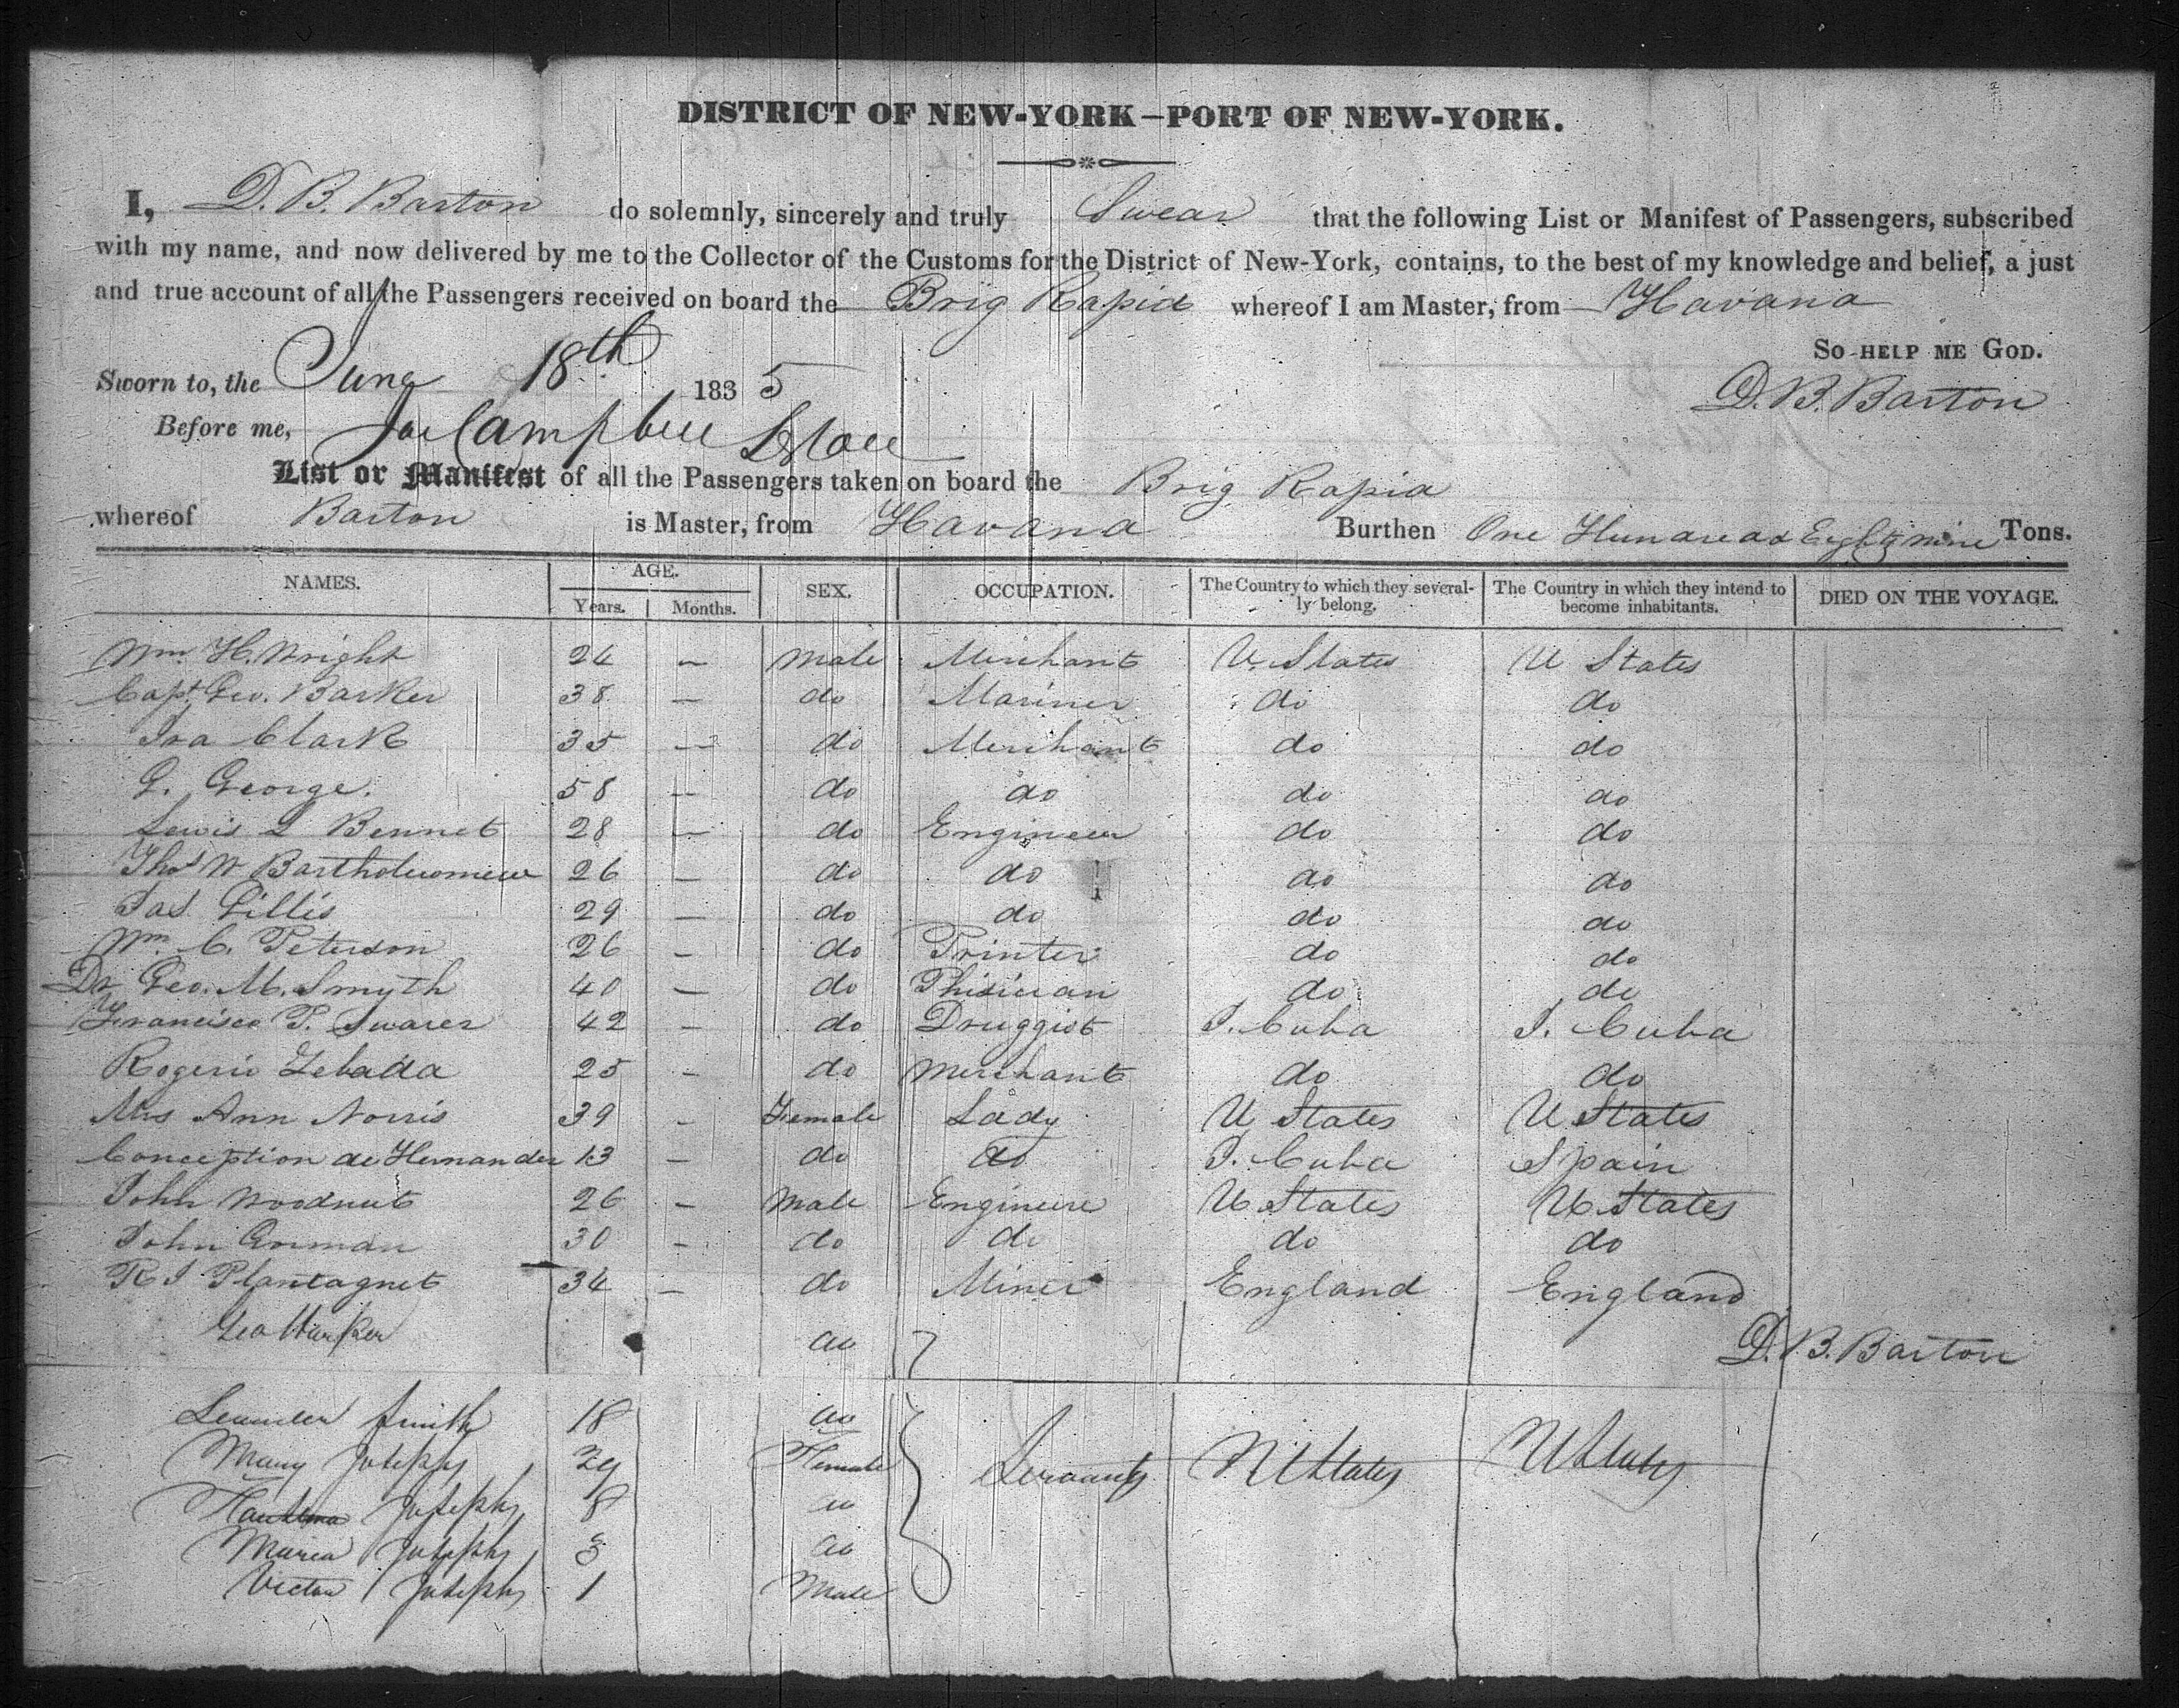 DISTRICT OF NEW-YORK—PORT OF NEW-YORK.
I, D. B. Barton do solemnly, sincerely and truly Swear that the following List or Manifest of Passengers, subscribed
with my name, and now delivered by me to the Collector of the Customs for the District of New-York, contains, to the best of my knowledge and belief, a just
and true account of all the Passengers received on board the Brig Rapid whereof I am Master, from Havana
SO HELP ME GOD.
Sworn to, the June 18th 1835
D. B. Barton
Before me, Campbell
List or Manifest of all the Passengers taken on board the Brig Rapid
whereof Barton is Master, from Havana Burthen One Hundred & Eighty nine Tons.
NAMES. AGE. SEX. OCCUPATION. The Country to which they severally belong. The Country in which they intend to become inhabitants. DIED ON THE VOYAGE.
Years. Months.
Wm. H. Wright 24 — Male Merchant U. States U States
Capt. Geo. Barker 38 — do Mariner do do
Ira Clark 35 — do Merchant do do
G. George. 58 — do do do do
Lewis L Bennet 28 — do Engineer do do
Thos W Bartholuomew 26 — do do do do
Jas. Gillis 29 — do do do do
Wm. C. Peterson 26 — do Printer do do
Dr Geo. M. Smyth 40 — do Phisician do do
Francisco P. Swarer 42 — do Druggist I. Cuba I. Cuba
Rogerio Zebada 25 — do Merchant do do
Mrs Ann Norris 39 — Female Lady U States U States
Conception de Hernander 13 — do do I. Cuba Spain
John Woodnut 26 — Male Engineere U States U States
John 30 — do do do do
R I Plantagnet 34 — do Miner England England
Geo do
D. B. Barton
Leander Smith 18 do
Mary Josephs 29 Female Servants U States U States
Josephs 8 do
Maria Josephs 3 do
Victor Josephs 1 Male